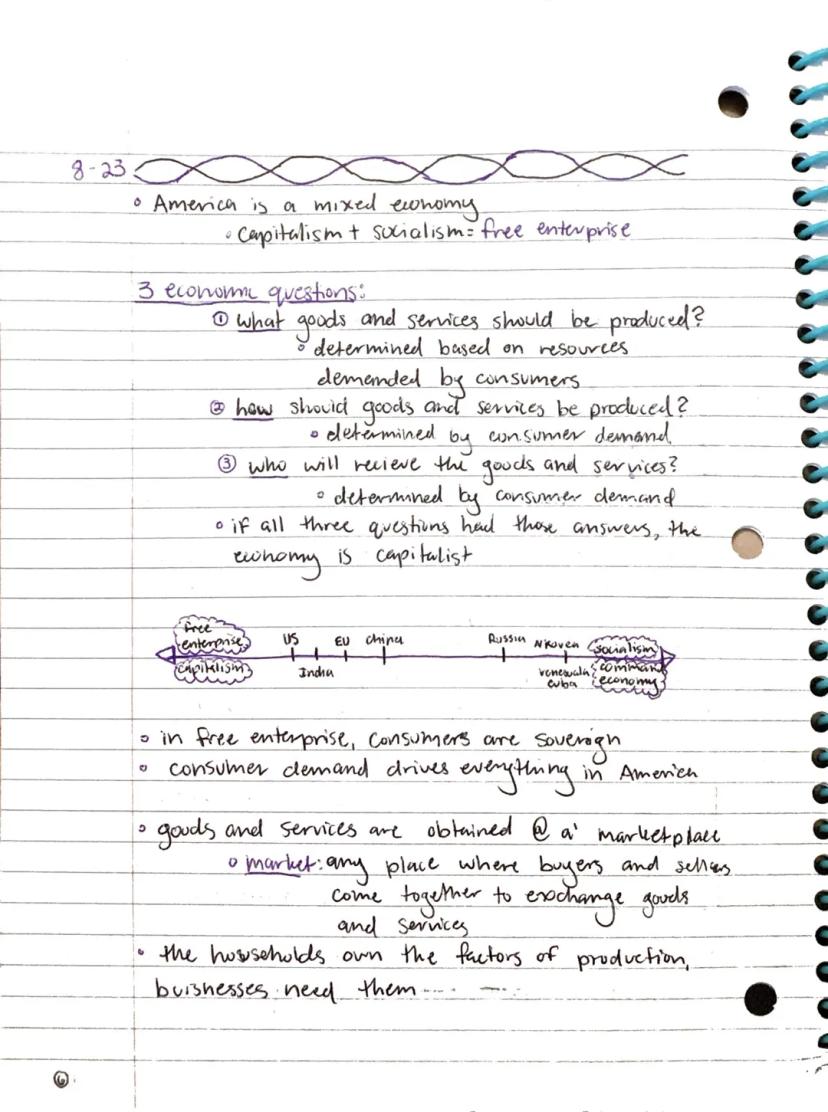 8-23
◦ America is a mixed economy
◦ capitalism + socialism = free enterprise
3 economic questions:
① what goods and services should be produced?
◦ determined based on resources
demanded by consumers
② how should goods and services be produced?
◦ determined by consumer demand
③ who will recieve the goods and services?
◦ determined by consumer demand
◦ if all three questions had those answers, the
economy is capitalist
free
enterprise
US
EU
China
Russia
N Korea
socialism
capitalism
India
venezuala
cuba
command
economy
◦ in free enterprise, consumers are soverign
◦ consumer demand drives everything in America
◦ goods and services are obtained @ a marketplace
◦ market: any place where buyers and sellers
come together to exchange goods
and services
◦ the households own the factors of production,
buisnesses need them
6